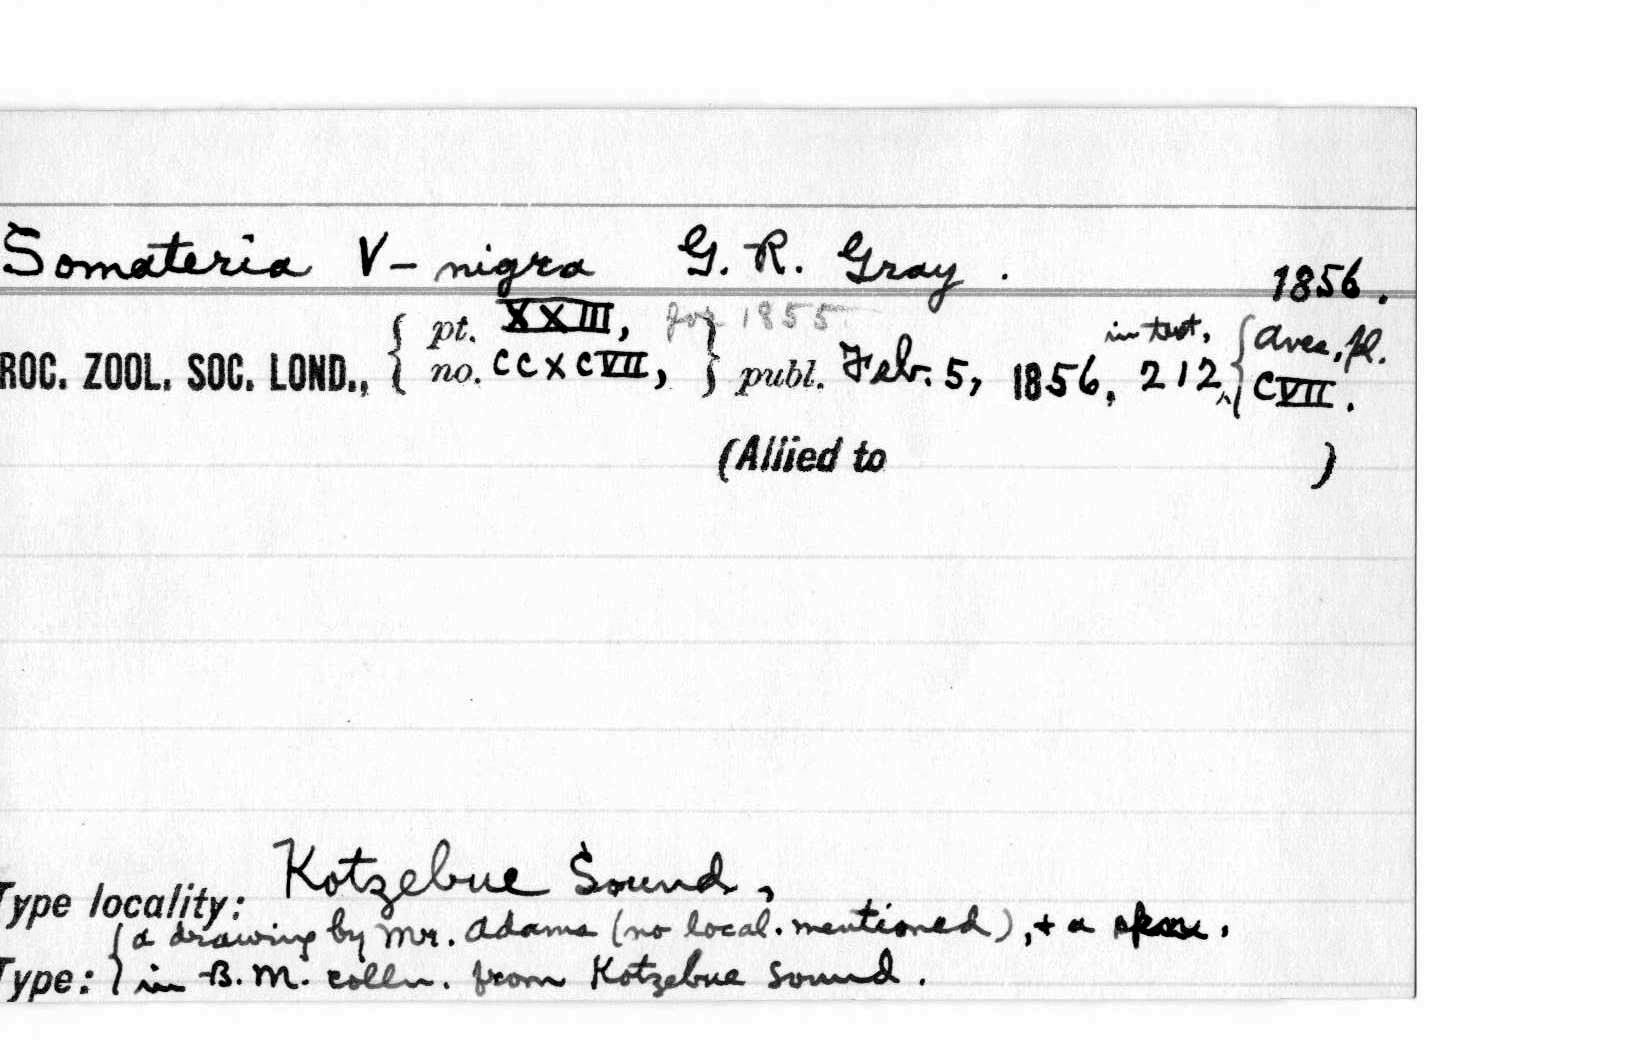 Somateria V-nigra G. R. Gray . 1856.
ROC. ZOOL. SOC. LOND., { pt. XXIII, for 1855
no. CCXCVII, } publ. Feb. 5, 1856, 212, in text, { Aves, pl. CVII.
(Allied to )
Type locality: Kotzebue Sound,
Type: { a drawing by Mr. Adams (no local. mentioned), + a spec.
in B.M. colln. from Kotzebue Sound.